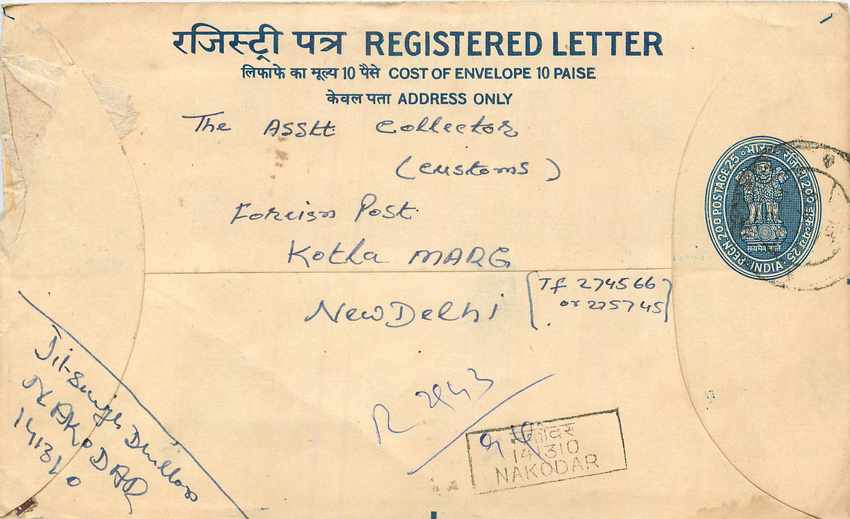 रजिस्ट्री पत्र REGISTERED LETTER
लिफाफे का मूल्य 10 पैसे COST OF ENVELOPE 10 PAISE
केवल पता ADDRESS ONLY
The ASStt Collector
(customs)
Foreign Post
Kotla MARG
New Delhi
(Tf 274566
or 275745)
REGN. 200 POSTAGE 25
भारत
INDIA
सत्यमेव जयते
Jit Singh Dhillon
NAKODAR
R 2943
नकोदर
NAKODAR